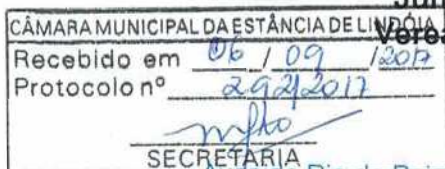 CÂMARA MUNICIPAL DA ESTÂNCIA DE LINDÓIA
Recebido em 06 / 09 /2017
Protocolo nº 292/2017
SECRETARIA